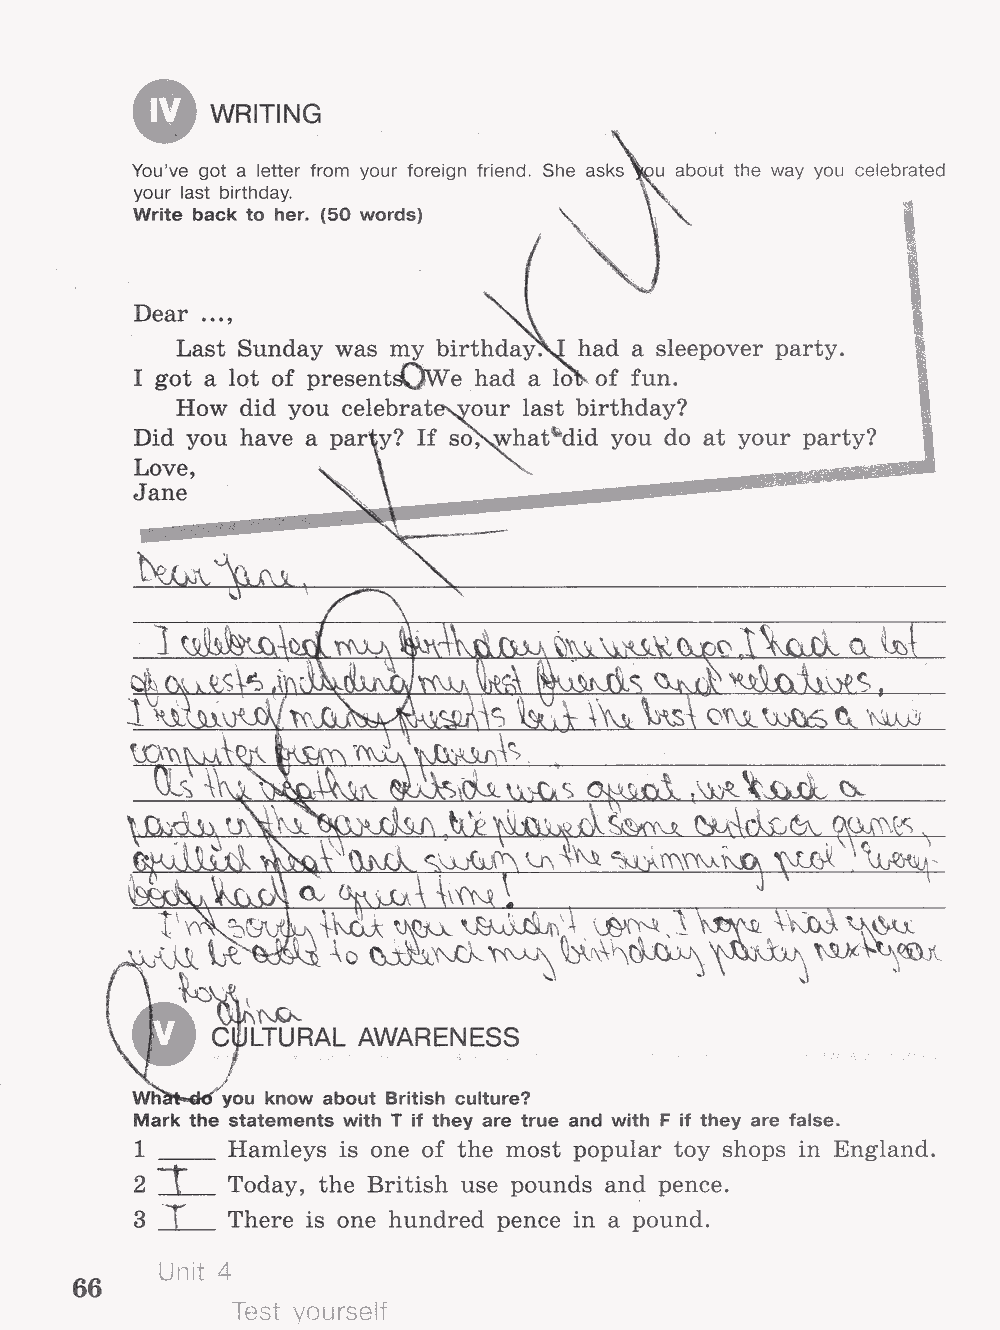 IV WRITING
You've got a letter from your foreign friend. She asks you about the way you celebrated
your last birthday.
Write back to her. (50 words)
Dear ...,
Last Sunday was my birthday. I had a sleepover party.
I got a lot of presents. We had a lot of fun.
How did you celebrate your last birthday?
Did you have a party? If so, what did you do at your party?
Love,
Jane
Dear Jane,
I celebrated my birthday one week ago. I had a lot
of guests, including my best friends and relatives.
I received many presents but the best one was a new
computer from my parents.
As the weather outside was great, we had a
party in the garden. We played some outdoor games,
grilled meat and swam in the swimming pool. Every-
body had a great time!
I'm sorry that you couldn't come. I hope that you
will be able to attend my birthday party next year
Love,
Alina
V CULTURAL AWARENESS
What do you know about British culture?
Mark the statements with T if they are true and with F if they are false.
1 ____ Hamleys is one of the most popular toy shops in England.
2 T Today, the British use pounds and pence.
3 T There is one hundred pence in a pound.
Unit 4
66
Test yourself